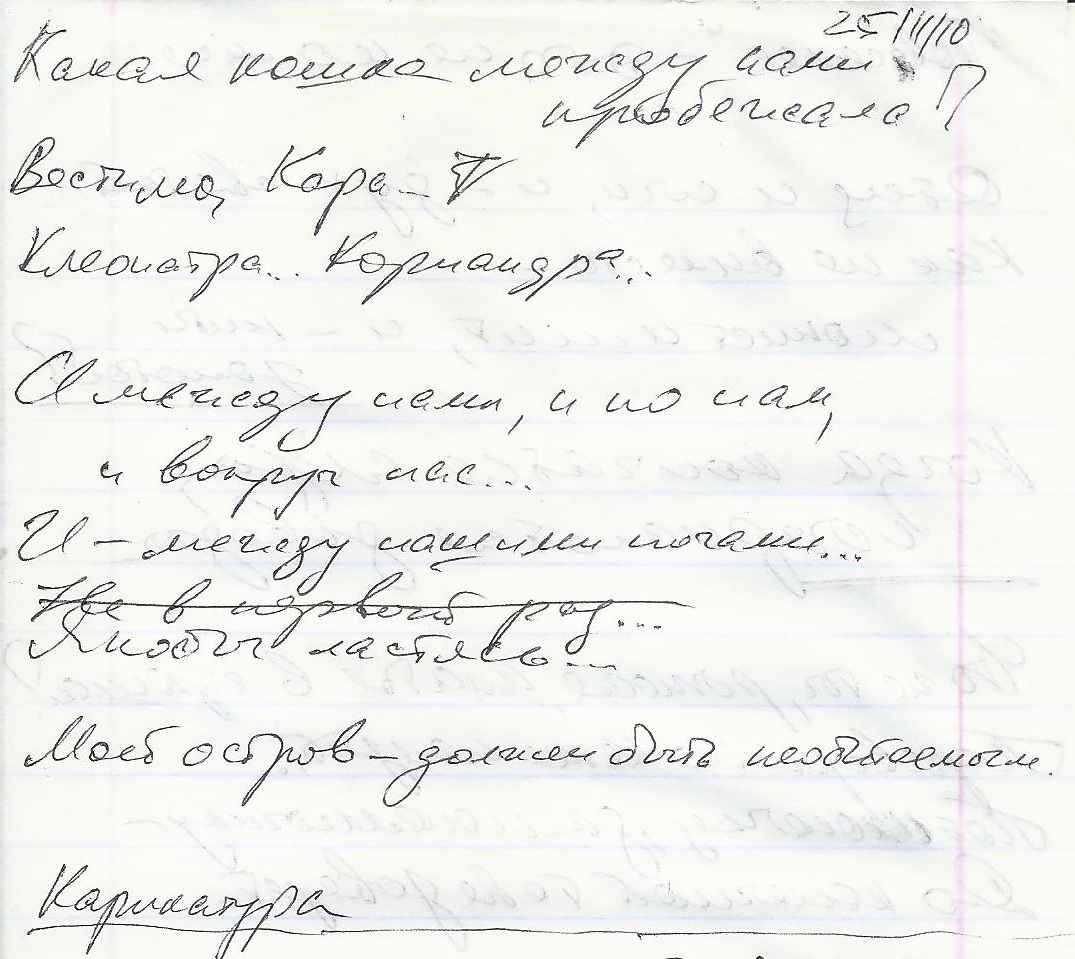 25/II/10
Какая кошка между нами
пробежала?
Вестимо, Кара-
Клеопатра... Кориандра...
И между нами, и по нам,
и вокруг нас...
И – между нашими ногами...
Не в первый раз...
Якобы ластясь...
Мой остров – должен быть необитаемым.
Карикатура